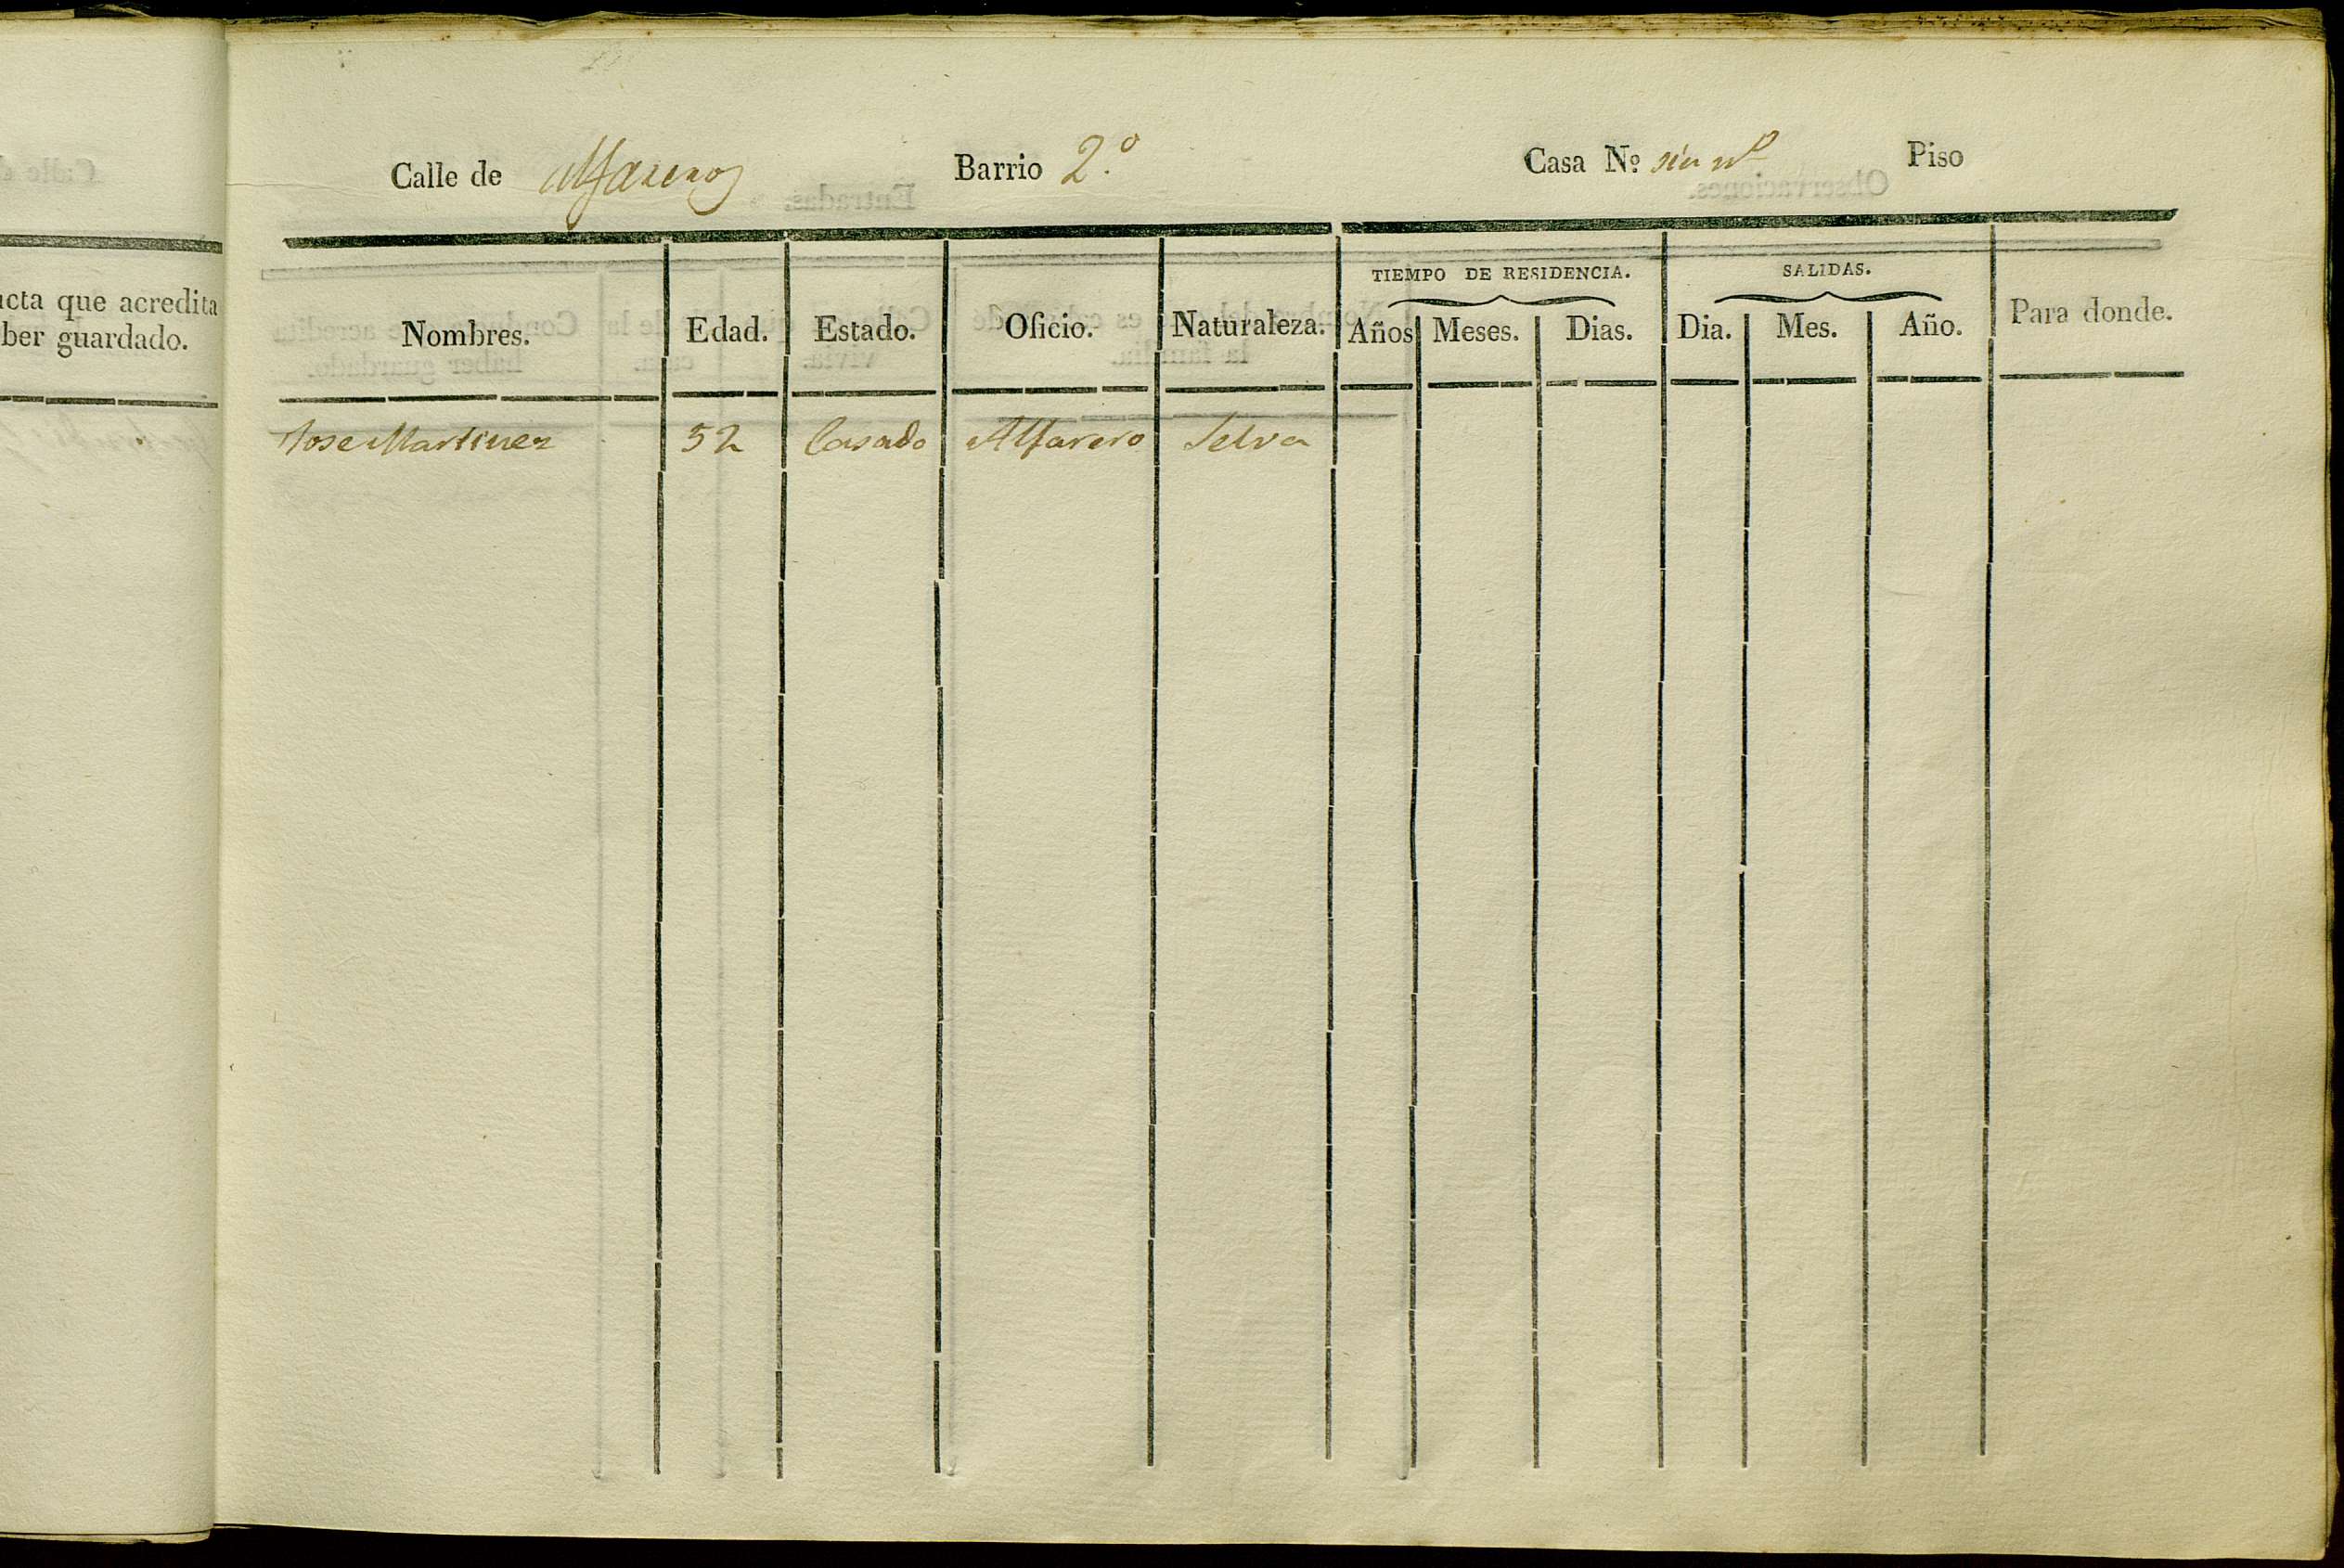 Calle de Alfareros Barrio 2.º Casa Nº sin nº Piso
acta que acredita
ber guardado.
TIEMPO DE RESIDENCIA. SALIDAS.
Nombres. Edad. Estado. Oficio. Naturaleza. Años Meses. Dias. Dia. Mes. Año. Para donde.
Jose Martinez 52 Casado Alfarero Selva